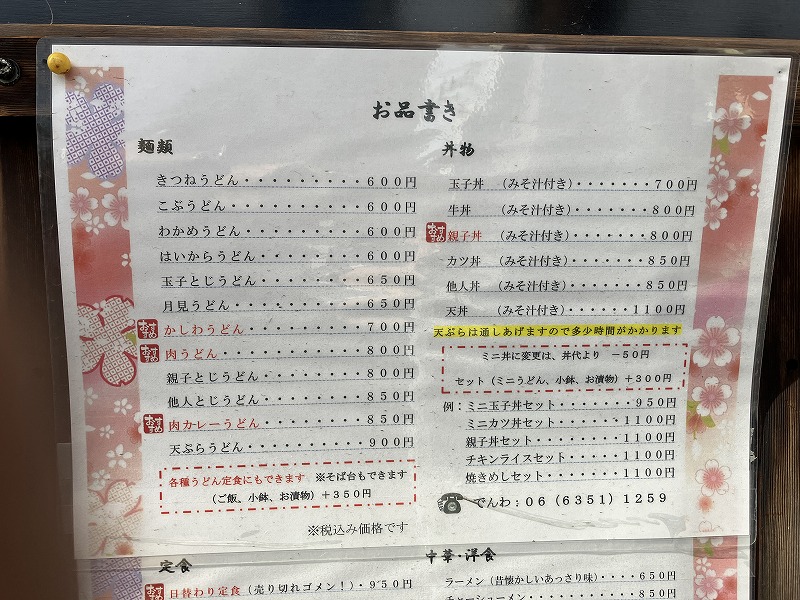 お品書き
麺類
きつねうどん・・・・・・・・・・600円
こぶうどん・・・・・・・・・・・600円
わかめうどん・・・・・・・・・・600円
はいからうどん・・・・・・・・・600円
玉子とじうどん・・・・・・・・・650円
月見うどん・・・・・・・・・・・650円
おすすめ かしわうどん・・・・・・・・・・700円
おすすめ 肉うどん・・・・・・・・・・・・800円
親子とじうどん・・・・・・・・・800円
他人とじうどん・・・・・・・・・850円
おすすめ 肉カレーうどん・・・・・・・・・850円
天ぷらうどん・・・・・・・・・・900円
各種うどん定食にもできます ※そば台もできます
(ご飯、小鉢、お漬物)+350円
※税込み価格です
丼物
玉子丼 (みそ汁付き)・・・・・・・700円
牛丼 (みそ汁付き)・・・・・・・・800円
おすすめ 親子丼 (みそ汁付き)・・・・・・・800円
カツ丼 (みそ汁付き)・・・・・・・850円
他人丼 (みそ汁付き)・・・・・・・850円
天丼 (みそ汁付き)・・・・・・・1100円
天ぷらは通しあげますので多少時間がかかります
ミニ丼に変更は、丼代より −50円
セット(ミニうどん、小鉢、お漬物)+300円
例：ミニ玉子丼セット・・・・・・・950円
ミニカツ丼セット・・・・・・・1100円
親子丼セット・・・・・・・・・1100円
チキンライスセット・・・・・・1100円
焼きめしセット・・・・・・・・1100円
でんわ：06(6351)1259
定食
おすすめ 日替わり定食(売り切れゴメン！)・950円
中華・洋食
ラーメン(昔懐かしいあっさり味)・・・・650円
チャーシューメン・・・・・・・・・850円